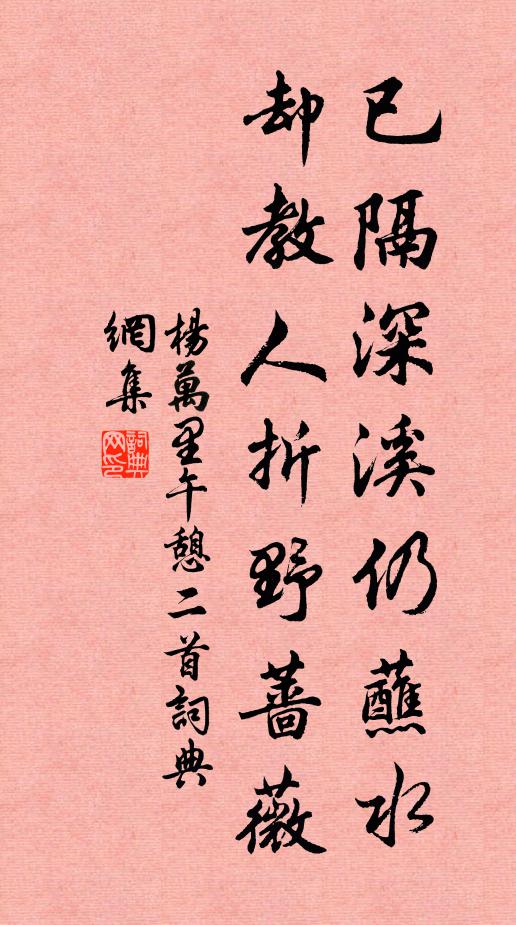 已隔深溪仍蘸水
却教人折野薔薇
楊萬里午憩二首詞典
網集
詞典網印